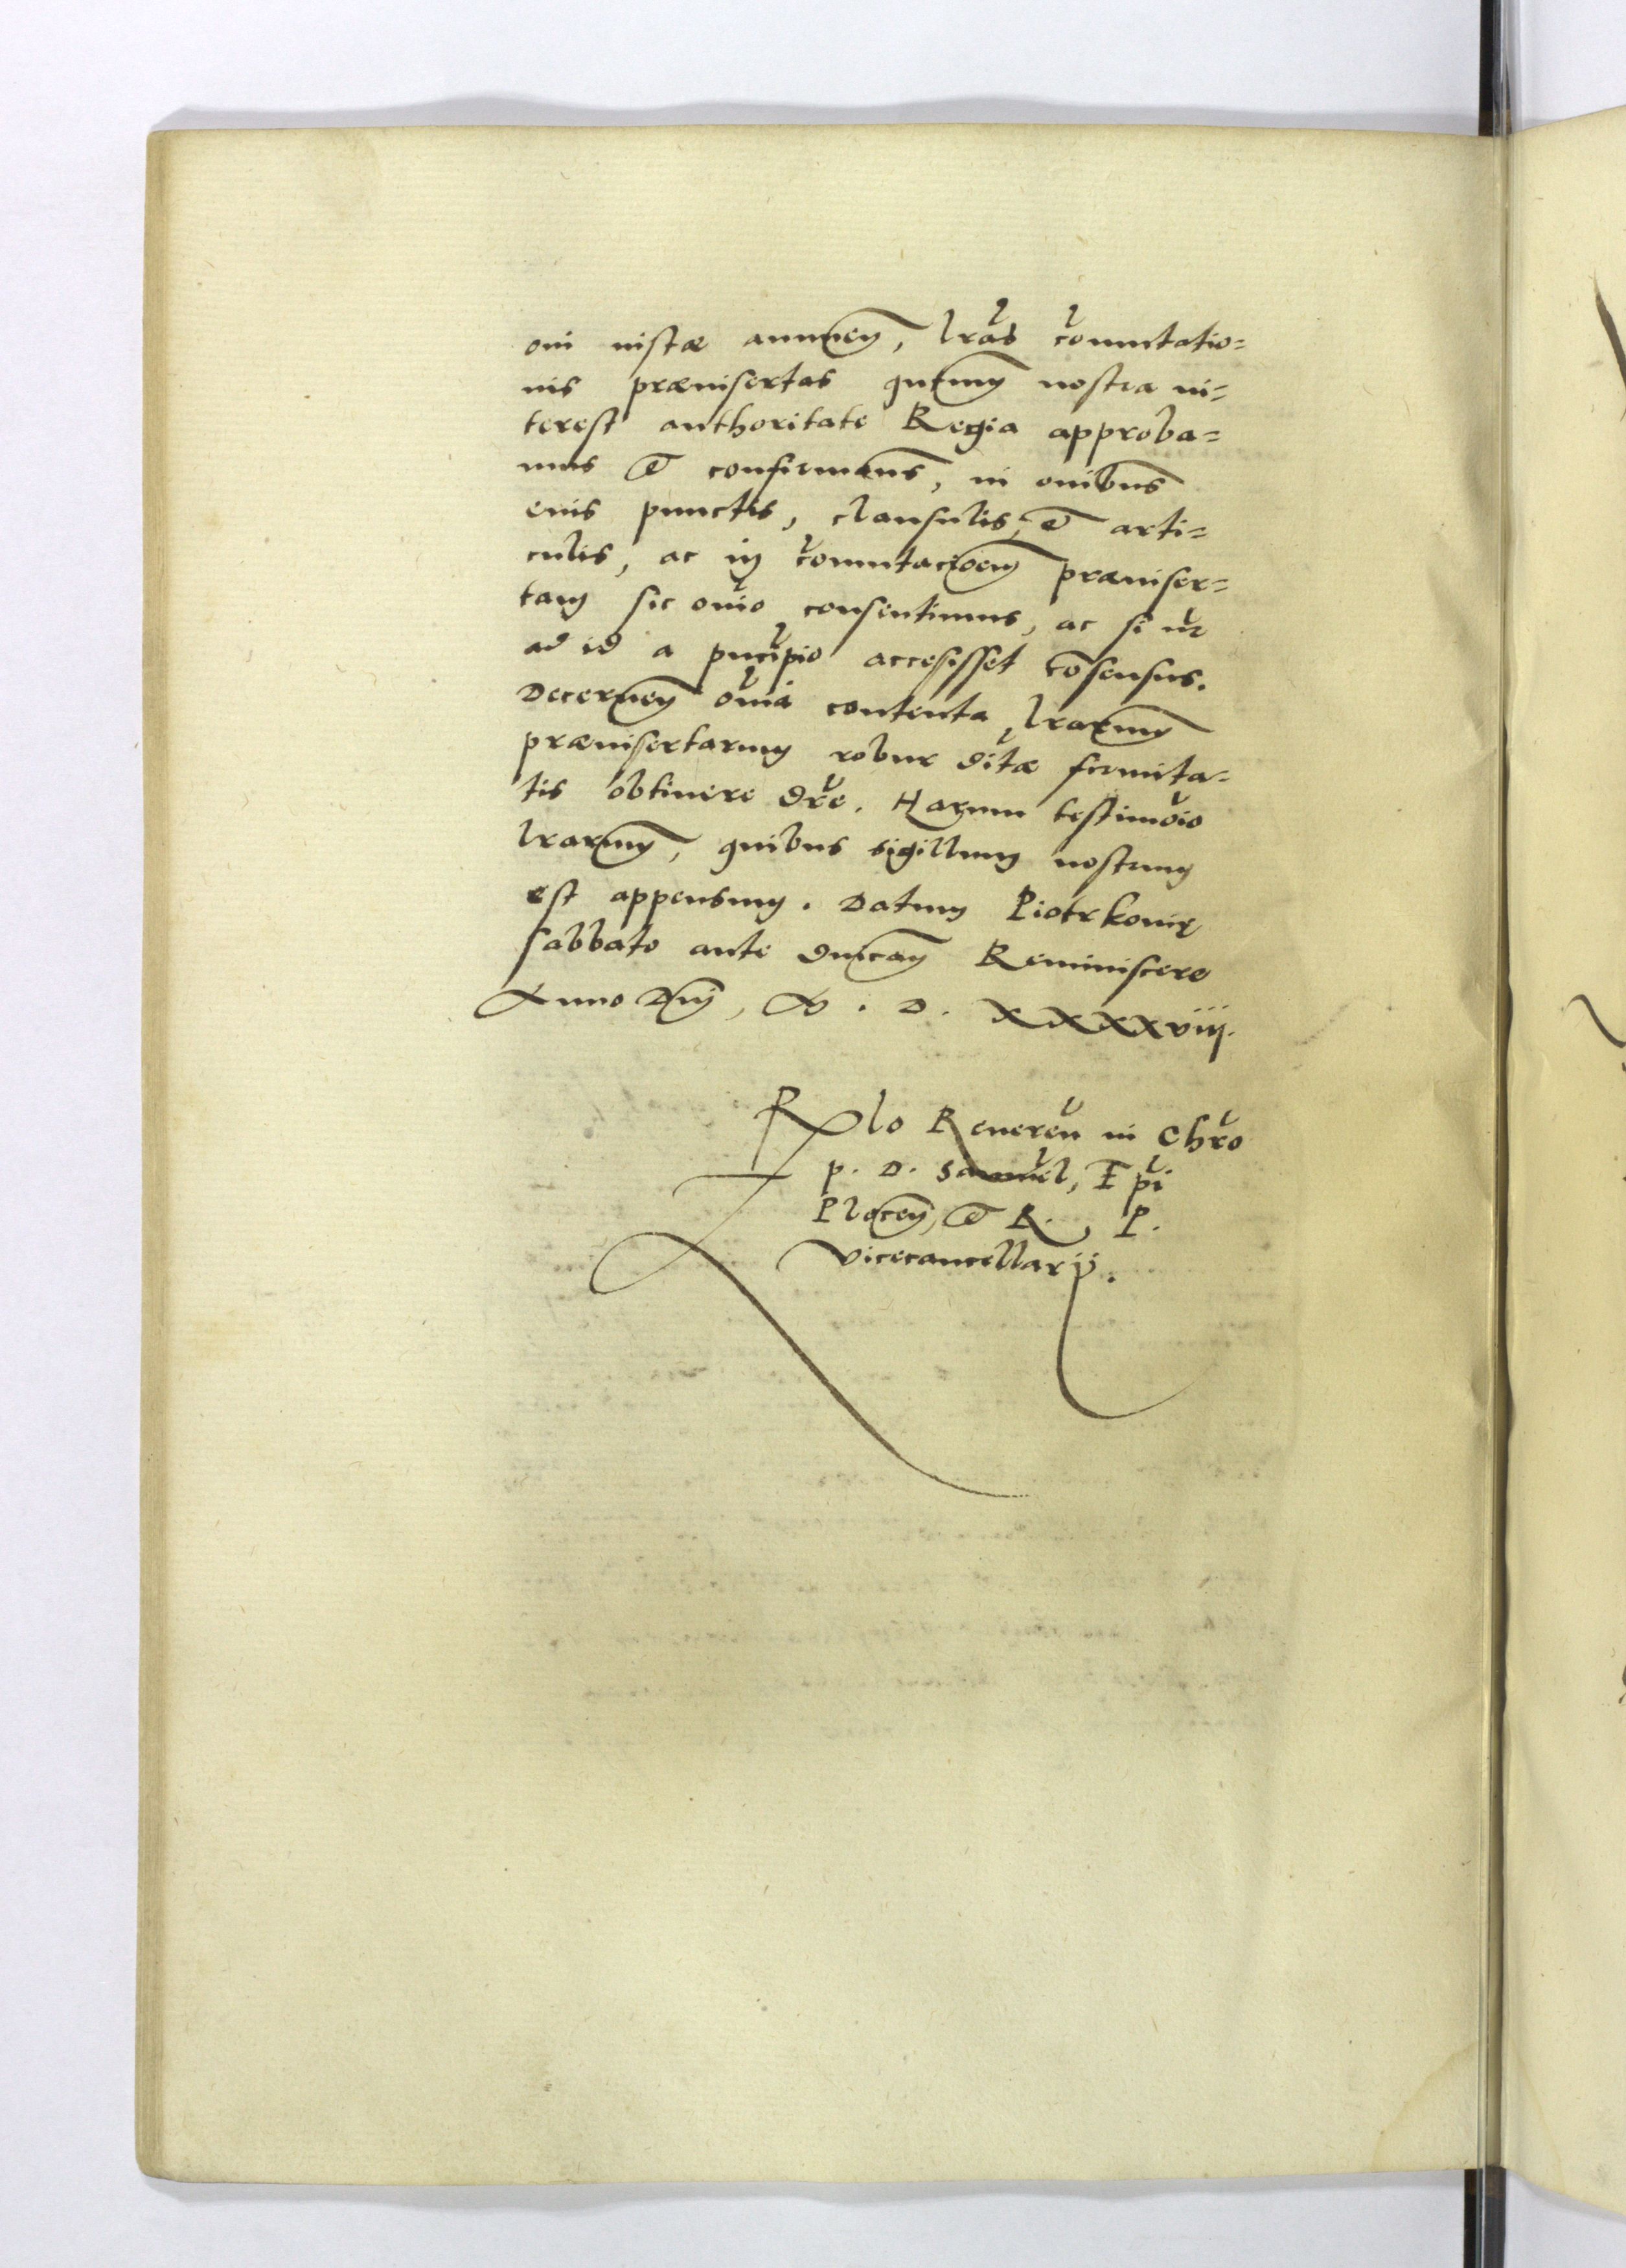 oni iustæ annuen, lras comutatio=
nis præinsertas qntum nostra in=
terest authoritate Regia approba=
mus et confirmams, in onibus
eius punctis, clausulis, et arti=
culis, ac in comutacioem præinser=
tam sic omio consentimus, ac si nr
ad id a pncipio accesisset cōsensus.
Decernen omia contenta lrarum
præinsertarum robur ditæ firmita=
tis obtinere dre. Harum testimoio
lrarum, quibus sigillum nostrum
est appensum. Datum Piotrkouię
sabbato ante dnicam Reminiscere
Anno Dni, M. D. XXXXviij.
Rlo Reueren in Chro
p. D. Samuel, Epi
Plocen, et R. P.
Vicecancellarij.